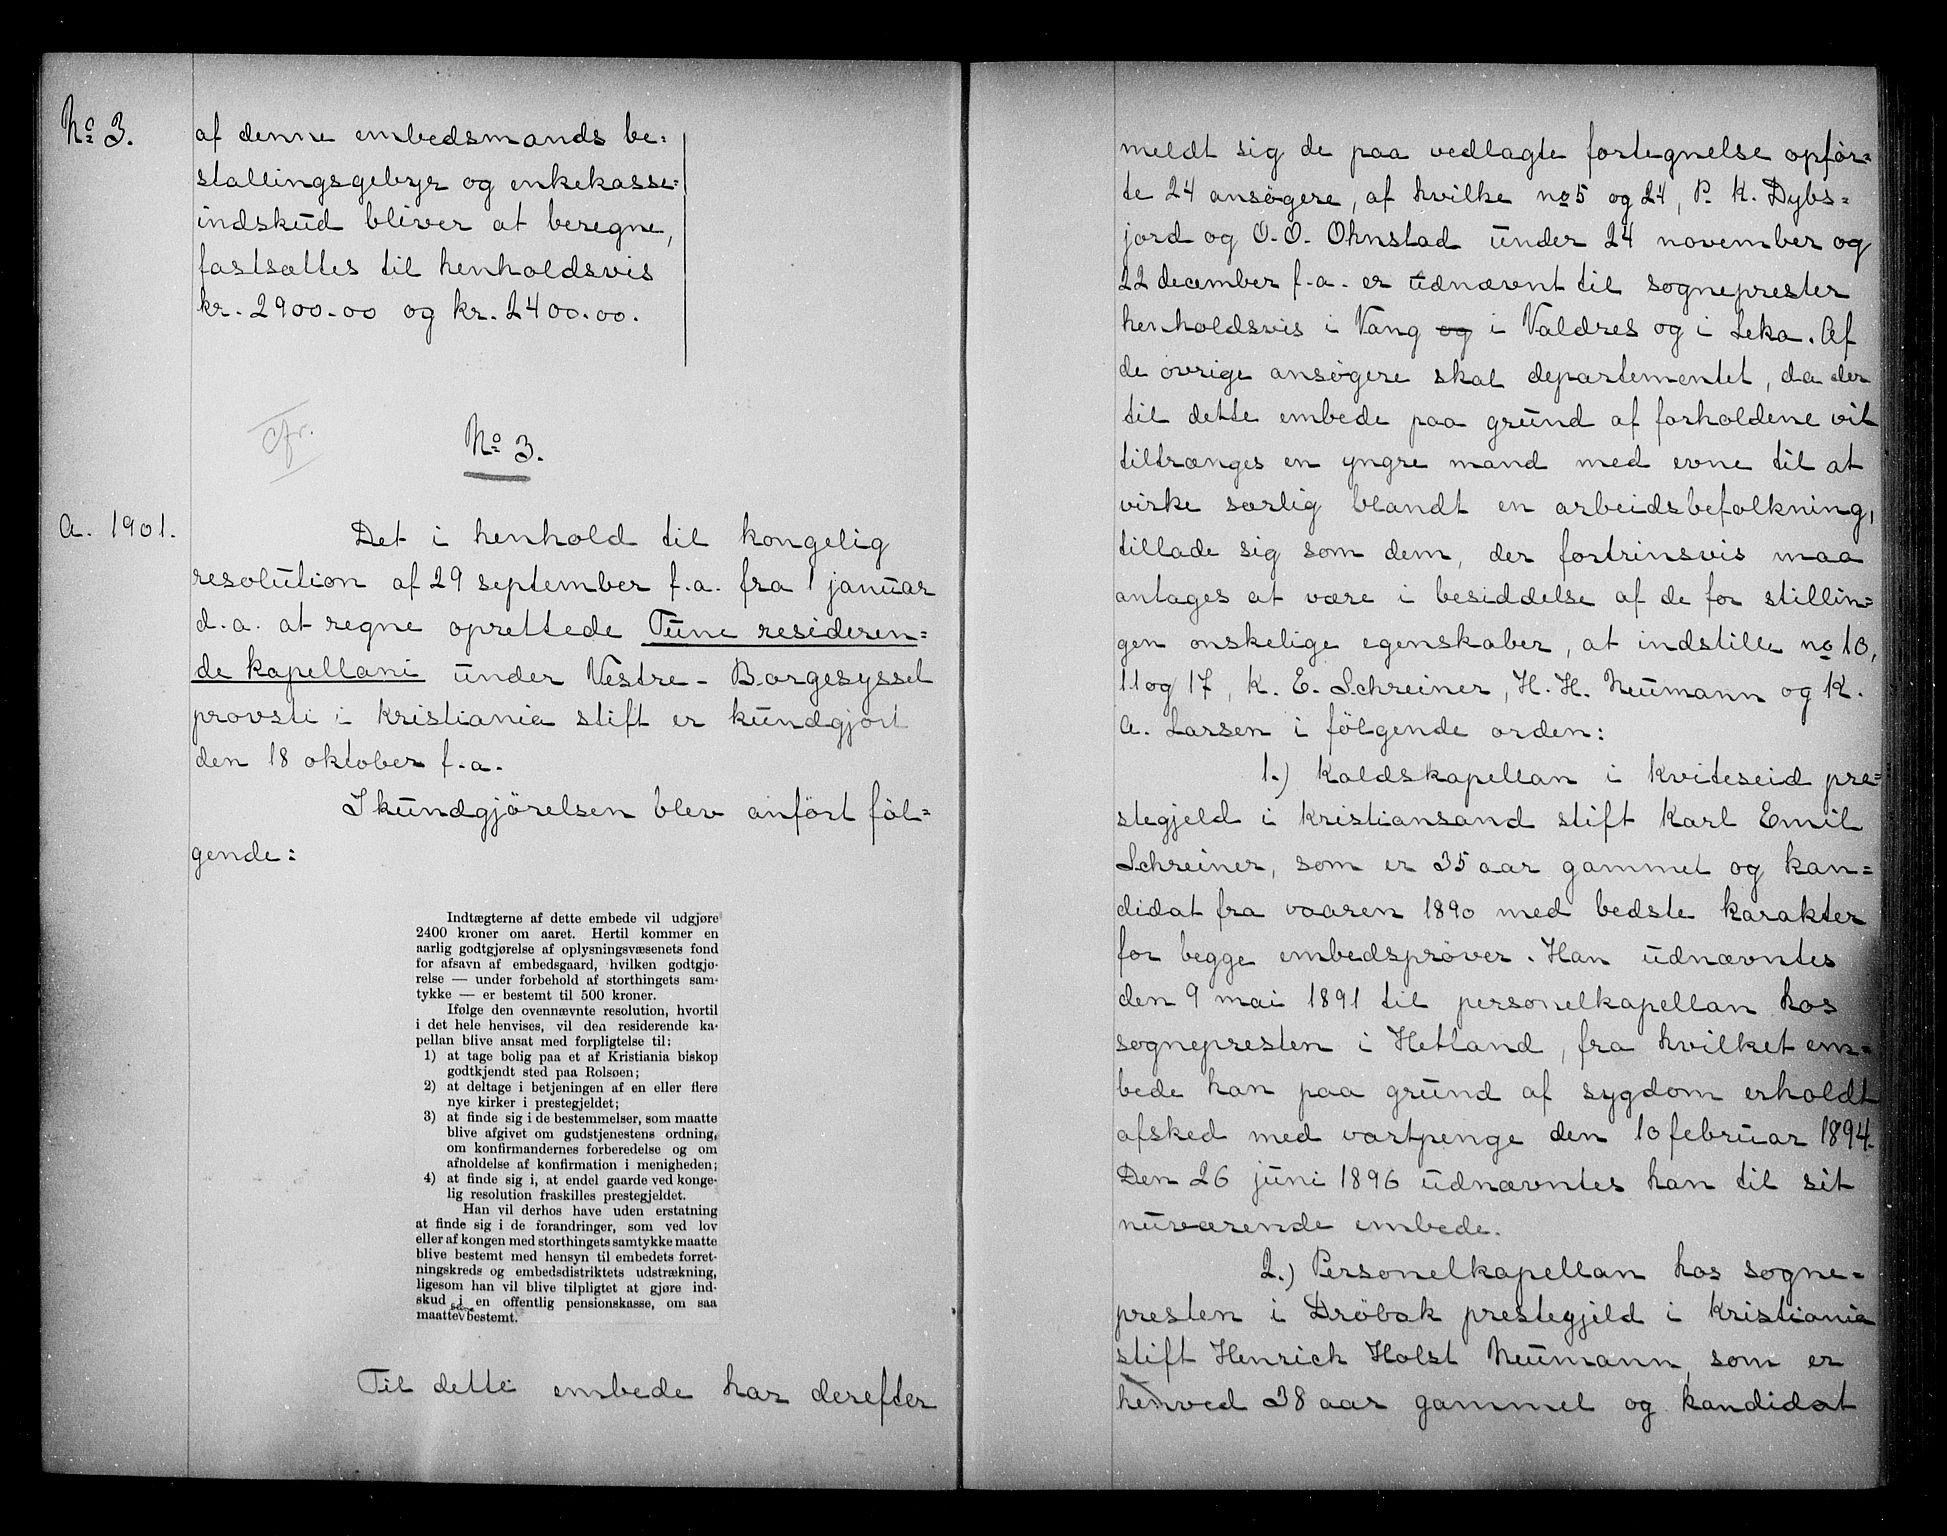 No 3.
af denne embedsmands be=
stallingsgebyr og enkekasse=
indskud bliver at beregne,
fastsættes til henholdsvis
kr. 2900.00 og kr. 2400.00.
cfr.
No 3.
a. 1901.
Det i henhold til kongelig
resolution af 29 september f.a. fra 1 januar
d.a. at regne oprettede Tune resideren=
de kapellani under Vestre-Borgesyssel
provsti i Kristiania stift er kundgjort
den 18 oktober f.a.
I kundgjörelsen blev anfört föl=
gende:
Indtægterne af dette embede vil udgjøre
2400 kroner om aaret. Hertil kommer en
aarlig godtgjørelse af oplysningsvæsenets fond
for afsavn af embedsgaard, hvilken godtgjø-
relse — under forbehold af storthingets sam-
tykke — er bestemt til 500 kroner.
Ifølge den ovennævnte resolution, hvortil
i det hele henvises, vil den residerende ka-
pellan blive ansat med forpligtelse til:
1) at tage bolig paa et af Kristiania biskop
godtkjendt sted paa Rolsøen;
2) at deltage i betjeningen af en eller flere
nye kirker i prestegjeldet;
3) at finde sig i de bestemmelser, som maatte
blive afgivet om gudstjenestens ordning,
om konfirmandernes forberedelse og om
afholdelse af konfirmation i menigheden;
4) at finde sig i, at endel gaarde ved konge-
lig resolution fraskilles prestegjeldet.
Han vil derhos have uden erstatning
at finde sig i de forandringer, som ved lov
eller af kongen med storthingets samtykke maatte
blive bestemt med hensyn til embedets forret-
ningskreds og embedsdistriktets udstrækning,
ligesom han vil blive tilpligtet at gjøre ind-
skud i en offentlig pensionskasse, om saa
maatte vbestemt.
Til dette embede har derefter
meldt sig de paa vedlagte fortegnelse opför=
te 24 ansøgere, af hvilke no 5 og 24, P. K. Dybs=
jord og O. O. Ohnstad under 24 november og
22 december f.a. er udnævnt til sogneprester
henholdsvis i Vang og i Valdres og i Leka. Af
de øvrige ansøgere skal departementet, da der
til dette embede paa grund af forholdene vil
tiltrænges en yngre mand med evne til at
virke særlig blandt en arbeidsbefolkning,
tillade sig som dem, der fortrinsvis maa
antages at være i besiddelse af de for stillin=
gen ønskelige egenskaber, at indstille no 10,
11 og 17, K. E. Schreiner, H. H. Neumann og K.
A. Larsen i fölgende orden:
1.) Kaldskapellan i Kviteseid pre=
stegjeld i Kristiansand stift Karl Emil
Schreiner, som er 35 aar gammel og kan=
didat fra vaaren 1890 med bedste karakter
for begge embedsprøver. Han udnævntes
den 9 mai 1891 til personelkapellan hos
sognepresten i Hetland, fra hvilket em=
bede han paa grund af sygdom erholdt
afsked med vartpenge den 10 februar 1894.
Den 26 juni 1896 udnævntes han til sit
nuværende embede.
2.) Personelkapellan hos sogne=
presten i Dröbak prestegjeld i Kristiania
stift Henrick Holst Neumann, som er
henved 38 aar gammel og kandidat